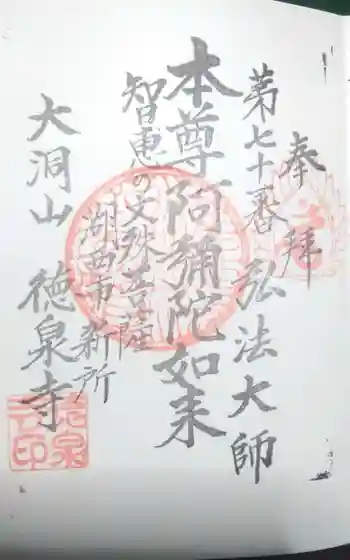 奉拝
第七十番 弘法大師
本尊 阿彌陀如来
智恵の文殊菩薩
湖西市新所
大洞山 徳泉寺